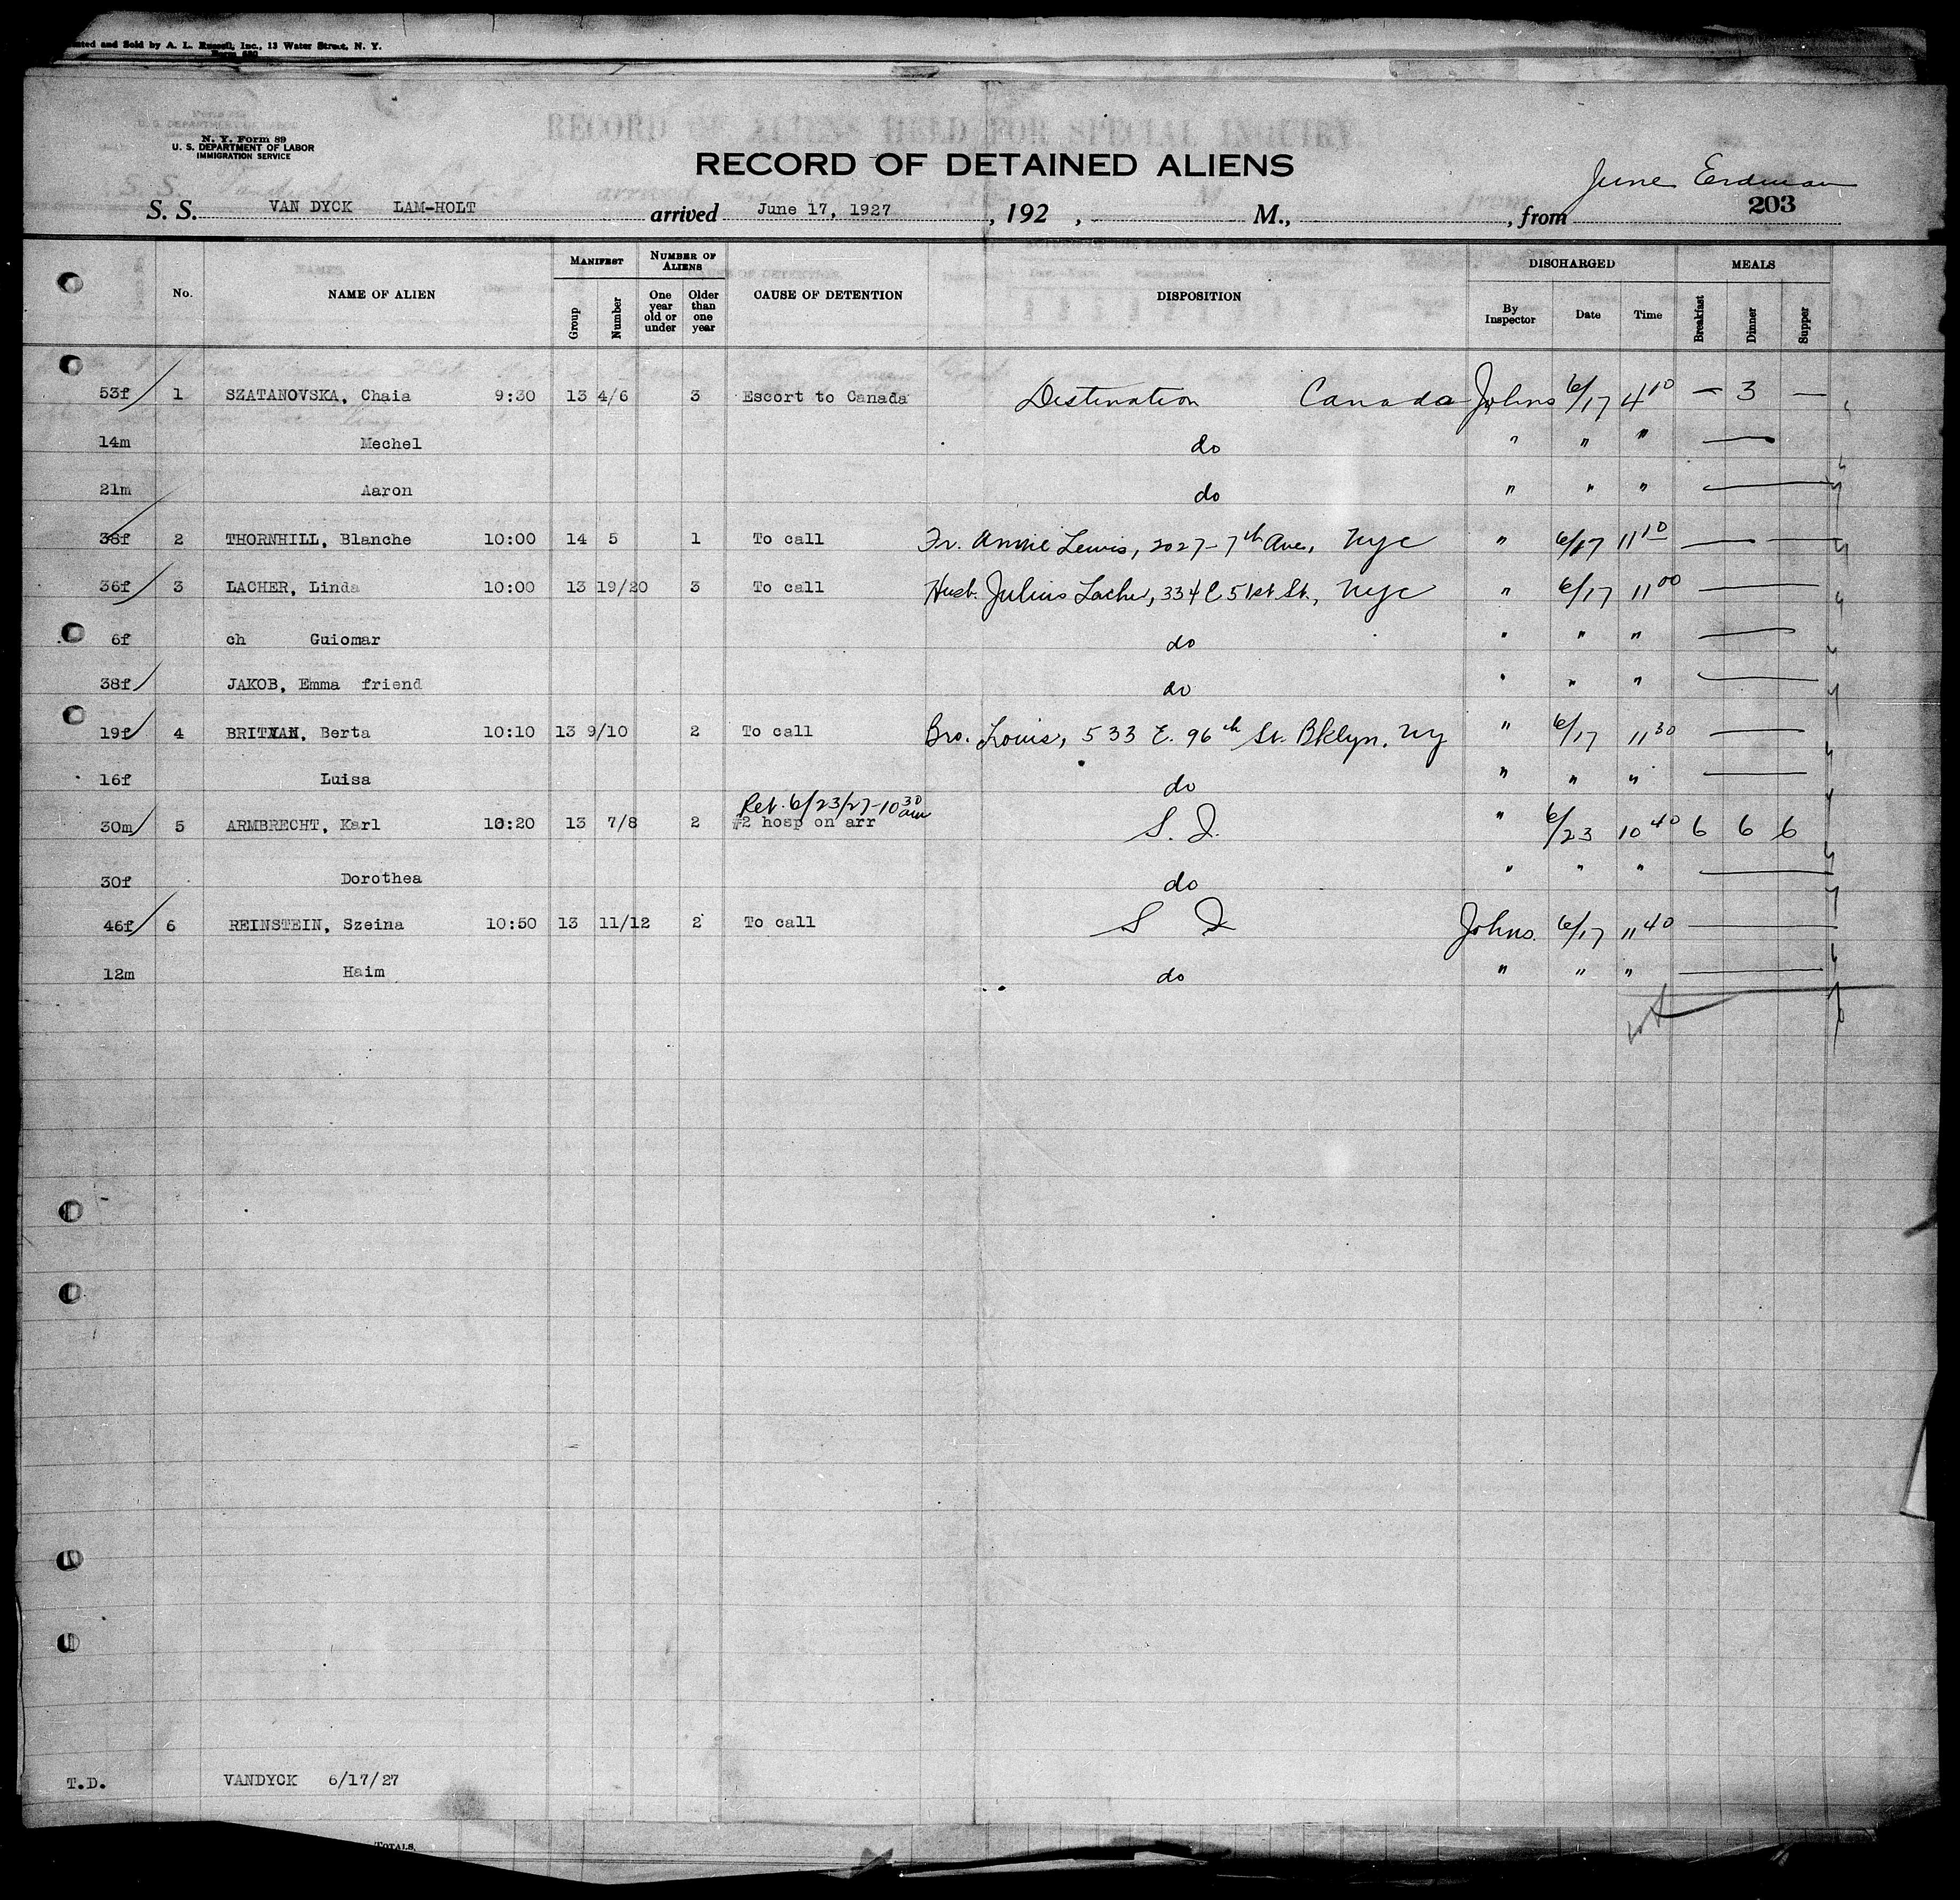 nted and Sold by A. L. Russell, Inc., 13 Water Street, N. Y.
Form 880
RECORD OF ALIENS HELD FOR SPECIAL INQUIRY
N. Y. Form 89
U. S. DEPARTMENT OF LABOR
IMMIGRATION SERVICE
RECORD OF DETAINED ALIENS
June Erdman
203
S. S. VAN DYCK LAM-HOLT arrived June 17, 1927, 192 , M., , from
No. NAME OF ALIEN MANIFEST Group Number NUMBER OF ALIENS One year old or under Older than one year CAUSE OF DETENTION DISPOSITION DISCHARGED By Inspector Date Time MEALS Breakfast Dinner Supper
53f 1 SZATANOVSKA, Chaia 9:30 13 4/6 3 Escort to Canada Destination Canada Johns 6/17 4 10 — 3 —
14m Mechel do " " "
21m Aaron do " " "
38f 2 THORNHILL, Blanche 10:00 14 5 1 To call Fr. Annie Lewis, 2027-7th Ave, NYC " 6/17 11 10
36f 3 LACHER, Linda 10:00 13 19/20 3 To call Husb. Julius Lacher, 334 E 51st St., NYC " 6/17 11 00
6f ch Guiomar do " " "
38f JAKOB, Emma friend do " " "
19f 4 BRITVAN, Berta 10:10 13 9/10 2 To call Bro. Louis, 533 E. 96th St. Bklyn. NY " 6/17 11 30
16f Luisa do " " "
Ret. 6/23/27-10 30 am
30m 5 ARMBRECHT, Karl 10:20 13 7/8 2 #2 hosp on arr S. I. " 6/23 10 40 6 6 6
30f Dorothea do " " "
46f 6 REINSTEIN, Szeina 10:50 13 11/12 2 To call S I Johns. 6/17 11 40
12m Haim do " " "
T.D. VANDYCK 6/17/27
TOTALS